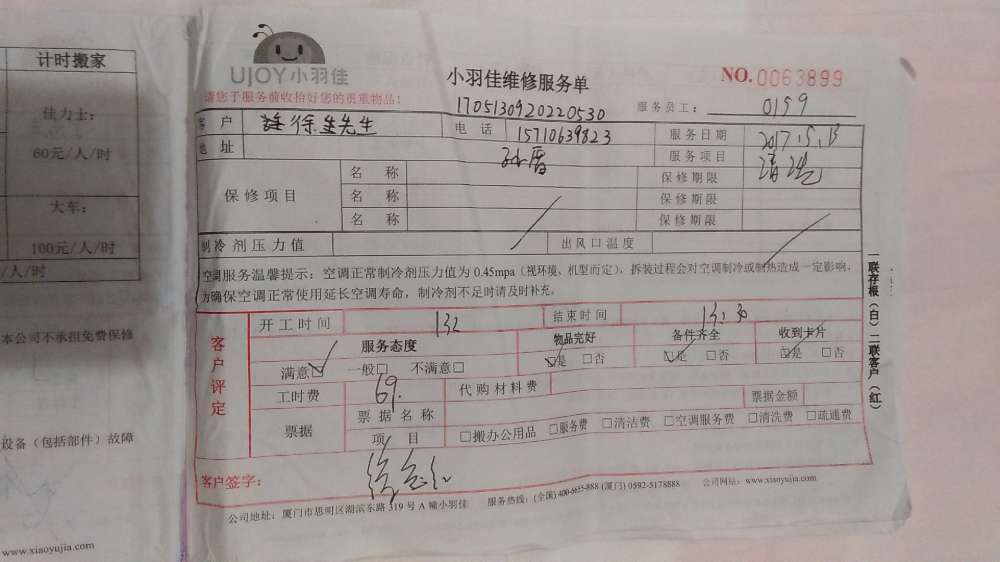 计时搬家
佳力士：
60元/人/时
大车：
100元/人/时
/人/时
本公司不承担免费保修
设备（包括部件）故障
www.xiaoyujia.com
UJOY小羽佳
小羽佳维修服务单
NO.0063899
请您于服务前收拾好您的贵重物品！
1705130920220530
服务员工：
0159
客户
徐先生
电话
15710639823
服务日期
2017.5.13
地址
服务项目
清洗
保修项目
名称
保修期限
名称
保修期限
名称
保修期限
制冷剂压力值
出风口温度
空调服务温馨提示：空调正常制冷剂压力值为 0.45mpa（视环境、机型而定），拆装过程会对空调制冷或制热造成一定影响，
为确保空调正常使用延长空调寿命，制冷剂不足时请及时补充。
客户评定
开工时间
结束时间
服务态度
物品完好
备件齐全
收到卡片
满意□ 一般□ 不满意□
□是 □否
□是 □否
□是 □否
工时费
69.
代购材料费
票据
票据名称
票据金额
项目
□搬办公用品 □服务费 □清洁费 □空调服务费 □清洗费 □疏通费
客户签字：
公司地址：厦门市思明区湖滨东路 319 号 A 幢小羽佳
服务热线：(全国) 400-6655-888 (厦门) 0592-5178888
公司网站：www.xiaoyujia.com
一联存根（白）二联客户（红）